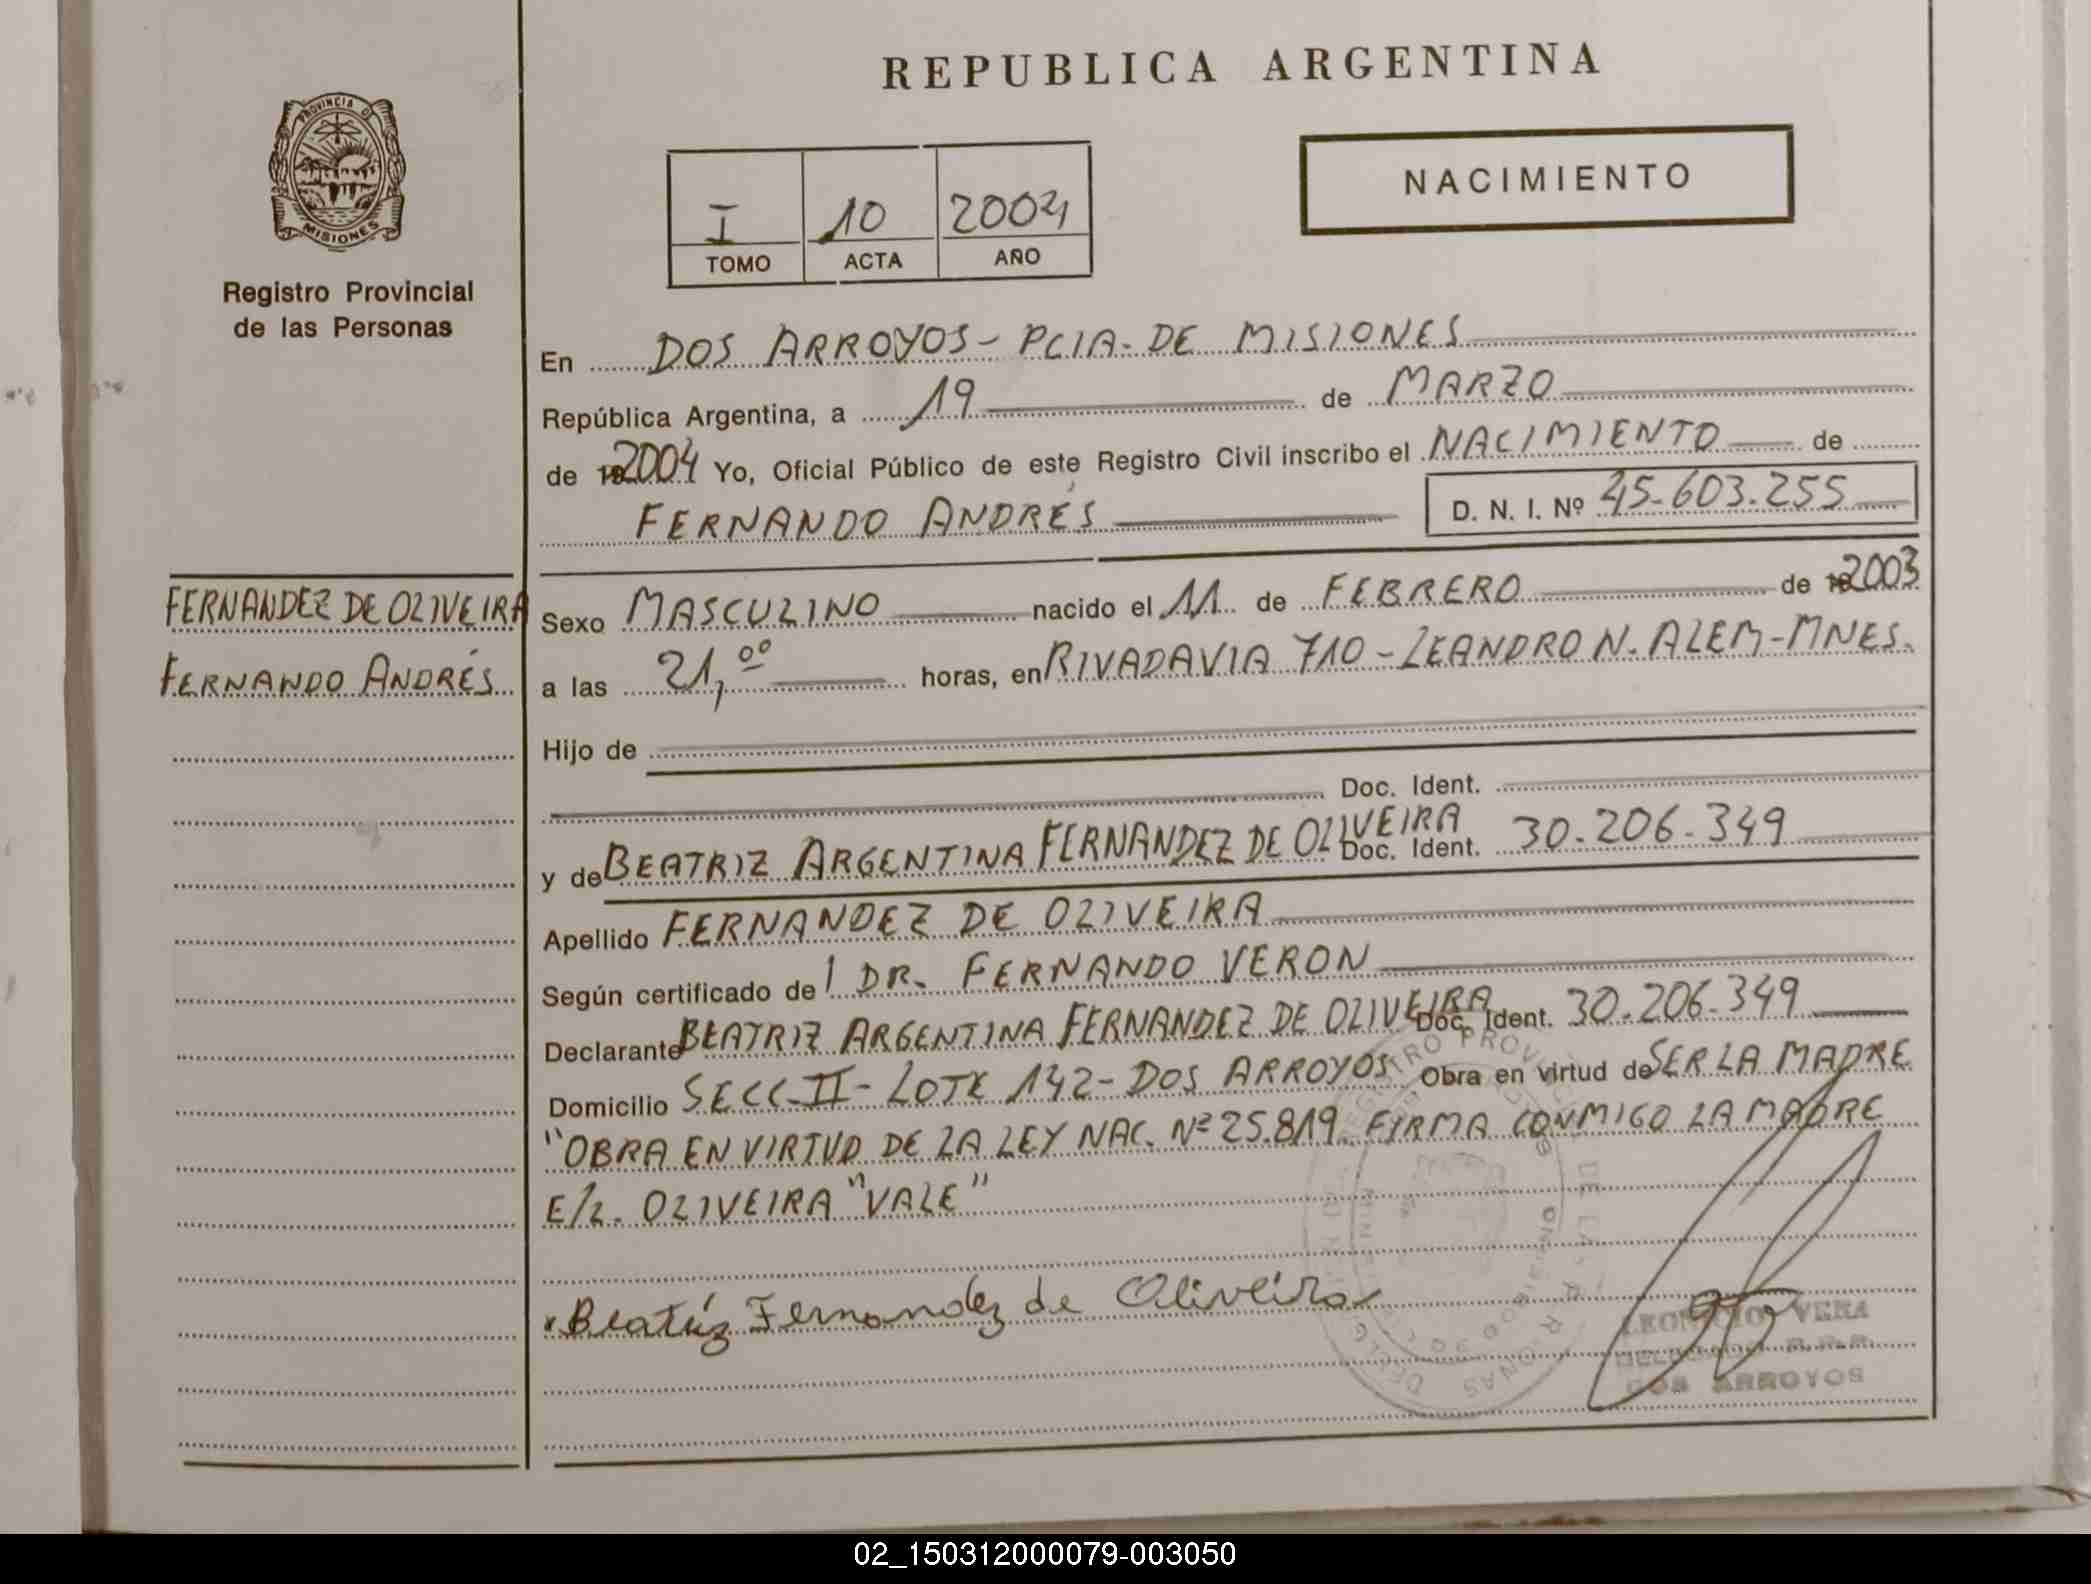 REPUBLICA ARGENTINA
PROVINCIA D
MISIONES
Registro Provincial
de las Personas
I 10 2004
TOMO ACTA AÑO
NACIMIENTO
En DOS ARROYOS - PCIA. DE MISIONES
República Argentina, a 19 de MARZO
de 2004 Yo, Oficial Público de este Registro Civil inscribo el NACIMIENTO de
FERNANDO ANDRÉS D. N. I. Nº 45.603.255
FERNANDEZ DE OLIVEIRA
FERNANDO ANDRÉS
Sexo MASCULINO nacido el 11 de FEBRERO de 2003
a las 21,00 horas, en RIVADAVIA 710 - LEANDRO N. ALEM - MNES.
Hijo de
Doc. Ident.
y de BEATRIZ ARGENTINA FERNANDEZ DE OLIVEIRA Doc. Ident. 30.206.349
Apellido FERNANDEZ DE OLIVEIRA
Según certificado del DR. FERNANDO VERON
Declarante BEATRIZ ARGENTINA FERNANDEZ DE OLIVEIRA Doc. Ident. 30.206.349
Domicilio SECC. II - LOTE 142 - DOS ARROYOS Obra en virtud de SER LA MADRE
"OBRA EN VIRTUD DE LA LEY NAC. Nº 25.819. FIRMA CONMIGO LA MADRE
E/L. OLIVEIRA "VALE"
Beatríz Fernandez de Oliveira
LEONCIO VERA
DOS ARROYOS
02_150312000079-003050